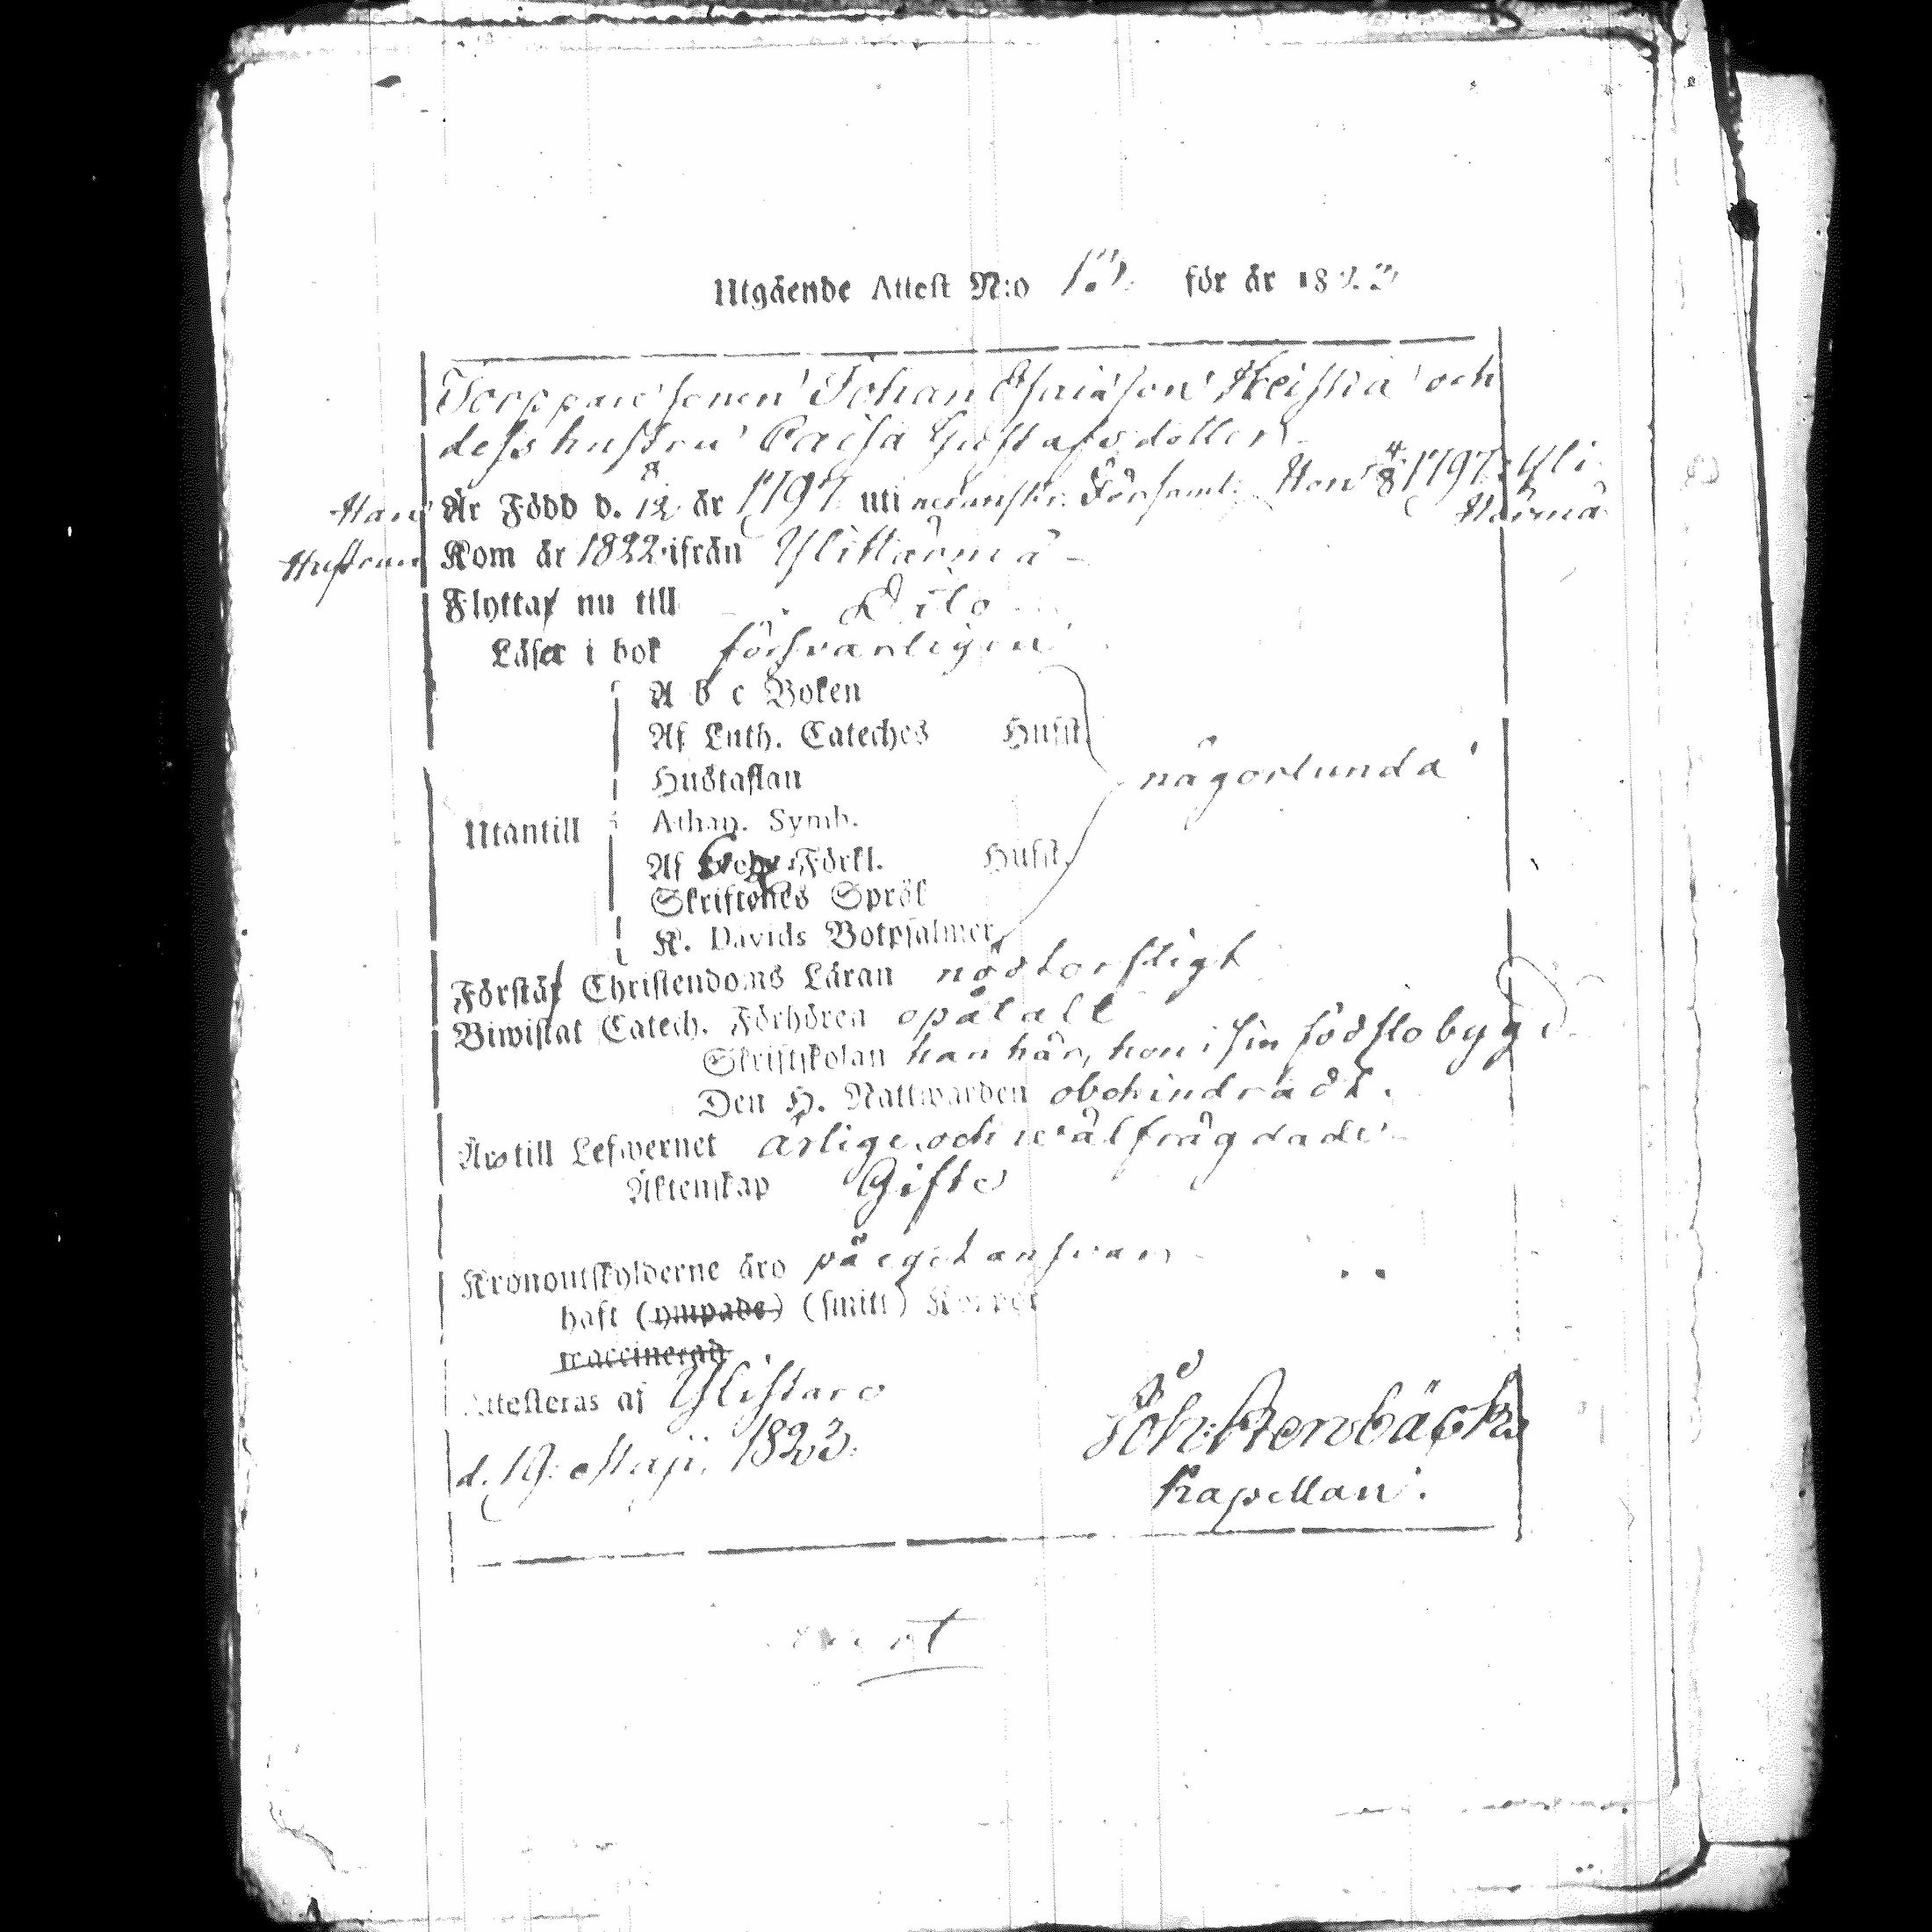 Utgående Attest N:o 13. för år 1823
Torppare sonen Johan Esaiasson Heissia och
dess hustru Caisa Gustafsdotter
Han Är Född d. 12/8 år 1797 uti nedanskr. Församl. Hon 4/8 1797 i Yli
Härmä
Hustrun Kom år 1822 ifrån Ylihärmä
Flytta nu till Dito
Läser i bok försvarligen
A b c Boken
Af Luth. Cateches Husst.
Hustaflan
någorlunda
Utantill
Athan. Symb.
Af Förkl. Husst.
Skriftenes Språk
K. Davids Botpsalmer
Förstå Christendoms Läran nödtorftigt
Biwistat Catech. Förhören opåtalt
Skriftskolan han här, hon i sin födslobygd
Den H. Nattwarden obehindradt.
Äro till Lefwernet ärlige och wälfrägdade
Äktenskap Gifte
Kronoutskylderne äro på eget answar
haft (ympade) (smitt) Koppor
waccinerad
Attesteras af Ylistaro
d. 19. Maji, 1823.
Joh: Stenbäck
Kapellan.